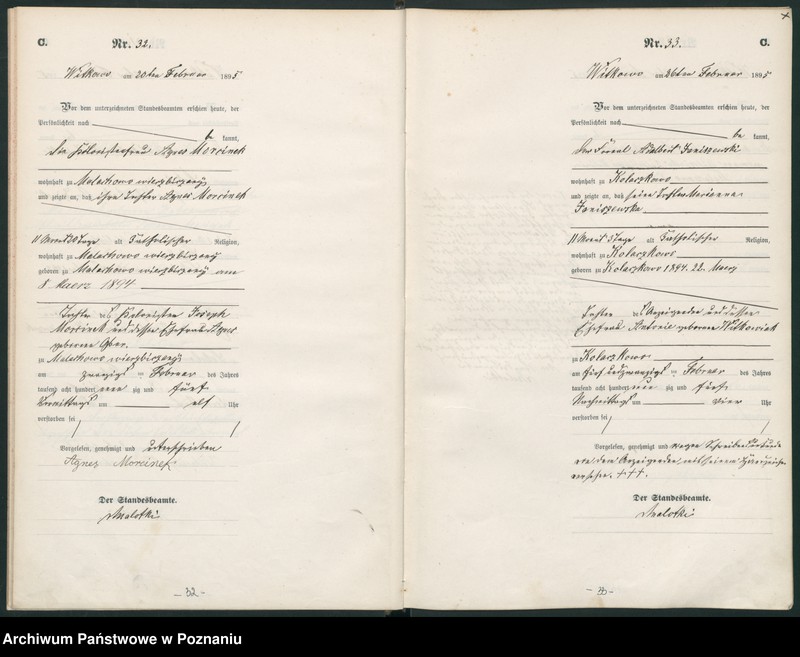 C.
Nr. 32.
Witkowo am 20ten Februar 1895
Vor dem unterzeichneten Standesbeamten erschien heute, der
Persönlichkeit nach
be kannt,
die Agnes Morcinek
wohnhaft zu Malachowo
und zeigte an, daß ihre Tochter Agnes Morcinek
11 Monat alt katholischer Religion,
wohnhaft zu Malachowo
geboren zu Malachowo am
8. Maerz 1894
Tochter des Joseph
Morcinek und dessen Ehefrau Agnes
geborene
zu Malachowo
am zwanzigsten Februar des Jahres
tausend acht hundert neun zig und fünf
Vormittags um elf Uhr
verstorben sei
Vorgelesen, genehmigt und unterschrieben
Agnes Morcinek
Der Standesbeamte.
Malotki
- 32 -
C.
Nr. 33.
Witkowo am 26ten Februar 1895
Vor dem unterzeichneten Standesbeamten erschien heute, der
Persönlichkeit nach
be kannt,
der Adalbert Janiszewski
wohnhaft zu Kolaczkowo
und zeigte an, daß seine Tochter Marianna
Janiszewska
11 Monat 3 Tage alt katholischer Religion,
wohnhaft zu Kolaczkowo
geboren zu Kolaczkowo 1894. 22. Maerz
Tochter des Anzeigenden und dessen
Ehefrau geborene Witkowiak
zu Kolaczkowo
am fünf und zwanzigsten Februar des Jahres
tausend acht hundert neun zig und fünf
Nachmittags um vier Uhr
verstorben sei
Vorgelesen, genehmigt und wegen
von dem Anzeigenden mit seinem Handzeichen
versehen. +++.
Der Standesbeamte.
Malotki
- 33 -
Archiwum Państwowe w Poznaniu